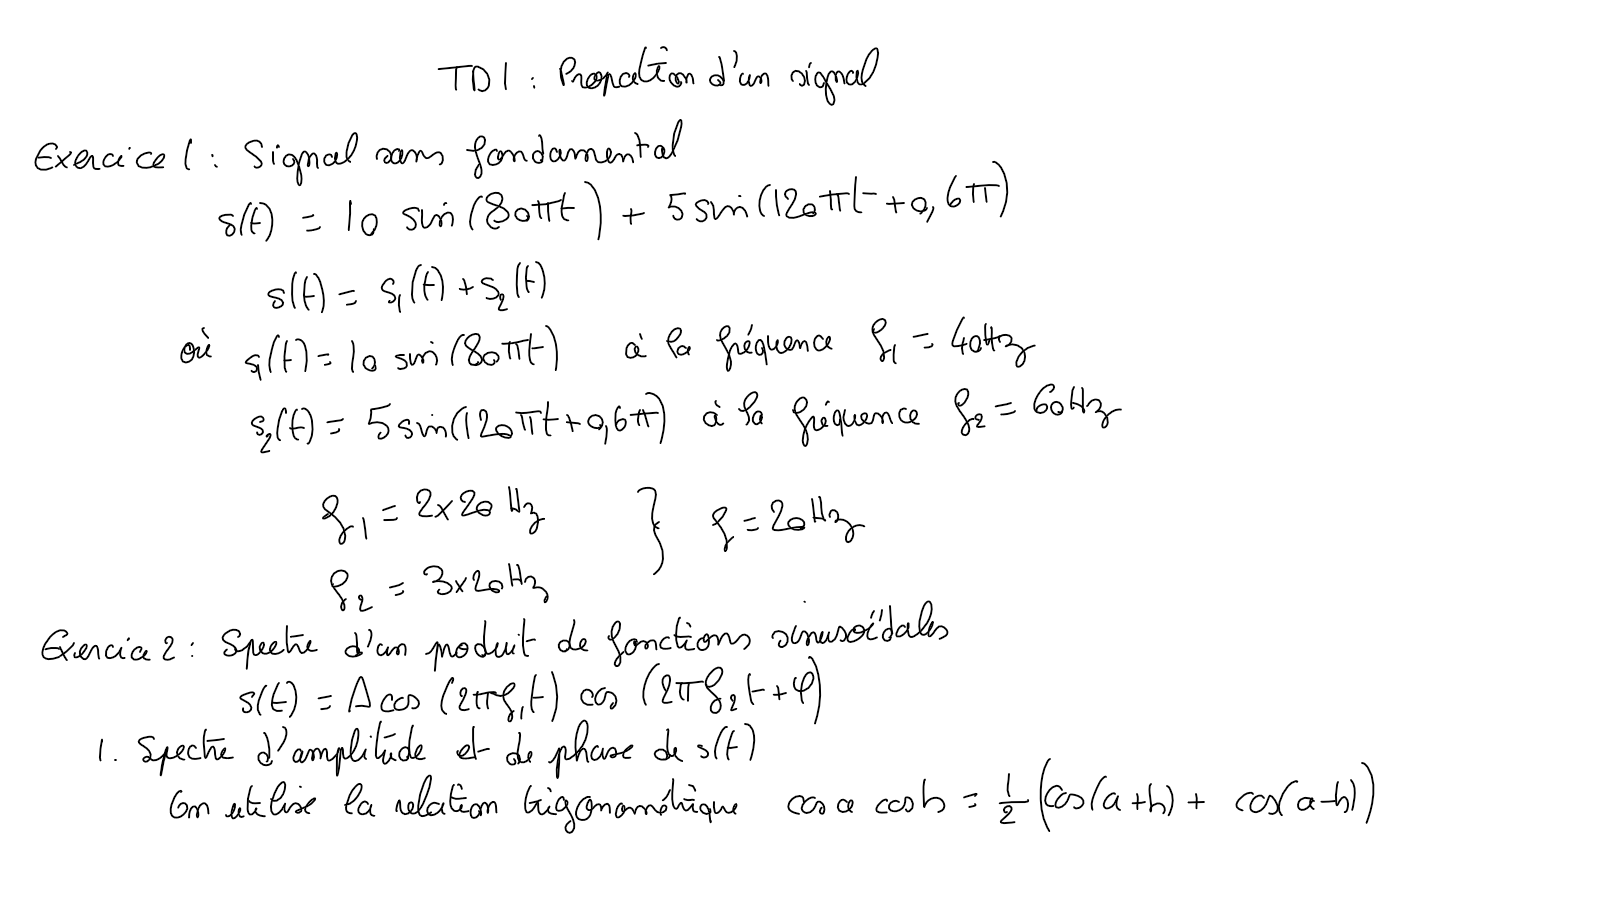 TD1 : Propation d'un signal
Exercice 1 : Signal sans fondamental
s(t) = 10 sin(80πt) + 5 sin(120πt + 0,6π)
s(t) = s₁(t) + s₂(t)
où s₁(t) = 10 sin(80πt) à la fréquence f₁ = 40Hz
s₂(t) = 5 sin(120πt + 0,6π) à la fréquence f₂ = 60Hz
f₁ = 2x20 Hz } f = 20Hz
f₂ = 3x20Hz
Exercice 2 : Spectre d'un produit de fonctions sinusoïdales
s(t) = A cos (2πf₁t) cos (2πf₂t + φ)
1. Spectre d'amplitude et de phase de s(t)
On utilise la relation trigonométrique cos a cos b = 1/2 (cos(a+b) + cos(a-b))